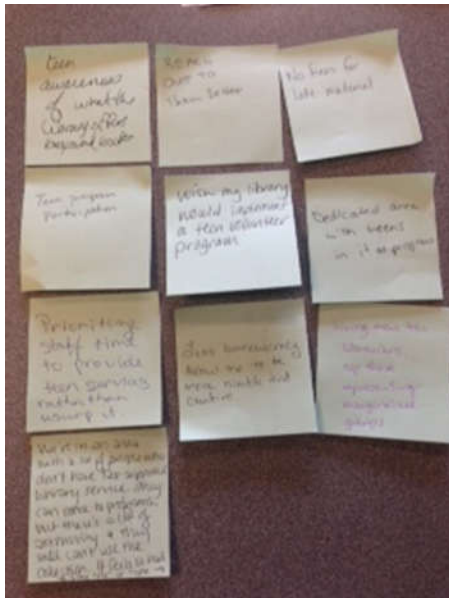 teen
awareness
of what the
library offers
beyond books
REACH
OUT TO
them better
No fines for
late material
Teen program
participation
Wish my library
would implement
a teen volunteer
program
Dedicated area
with teens
in it at programs
Prioritizing
staff time
to provide
teen services
rather than
usurp it
Less bureaucracy
allow me to be
more nimble and
creative
hiring more teen
librarians
representing
marginalized
groups
We're in an area
with a lot of people who
don't have tax supported
library service. They
can come to programs
but there's a lot of
& they
still can't use the
collection. It feels